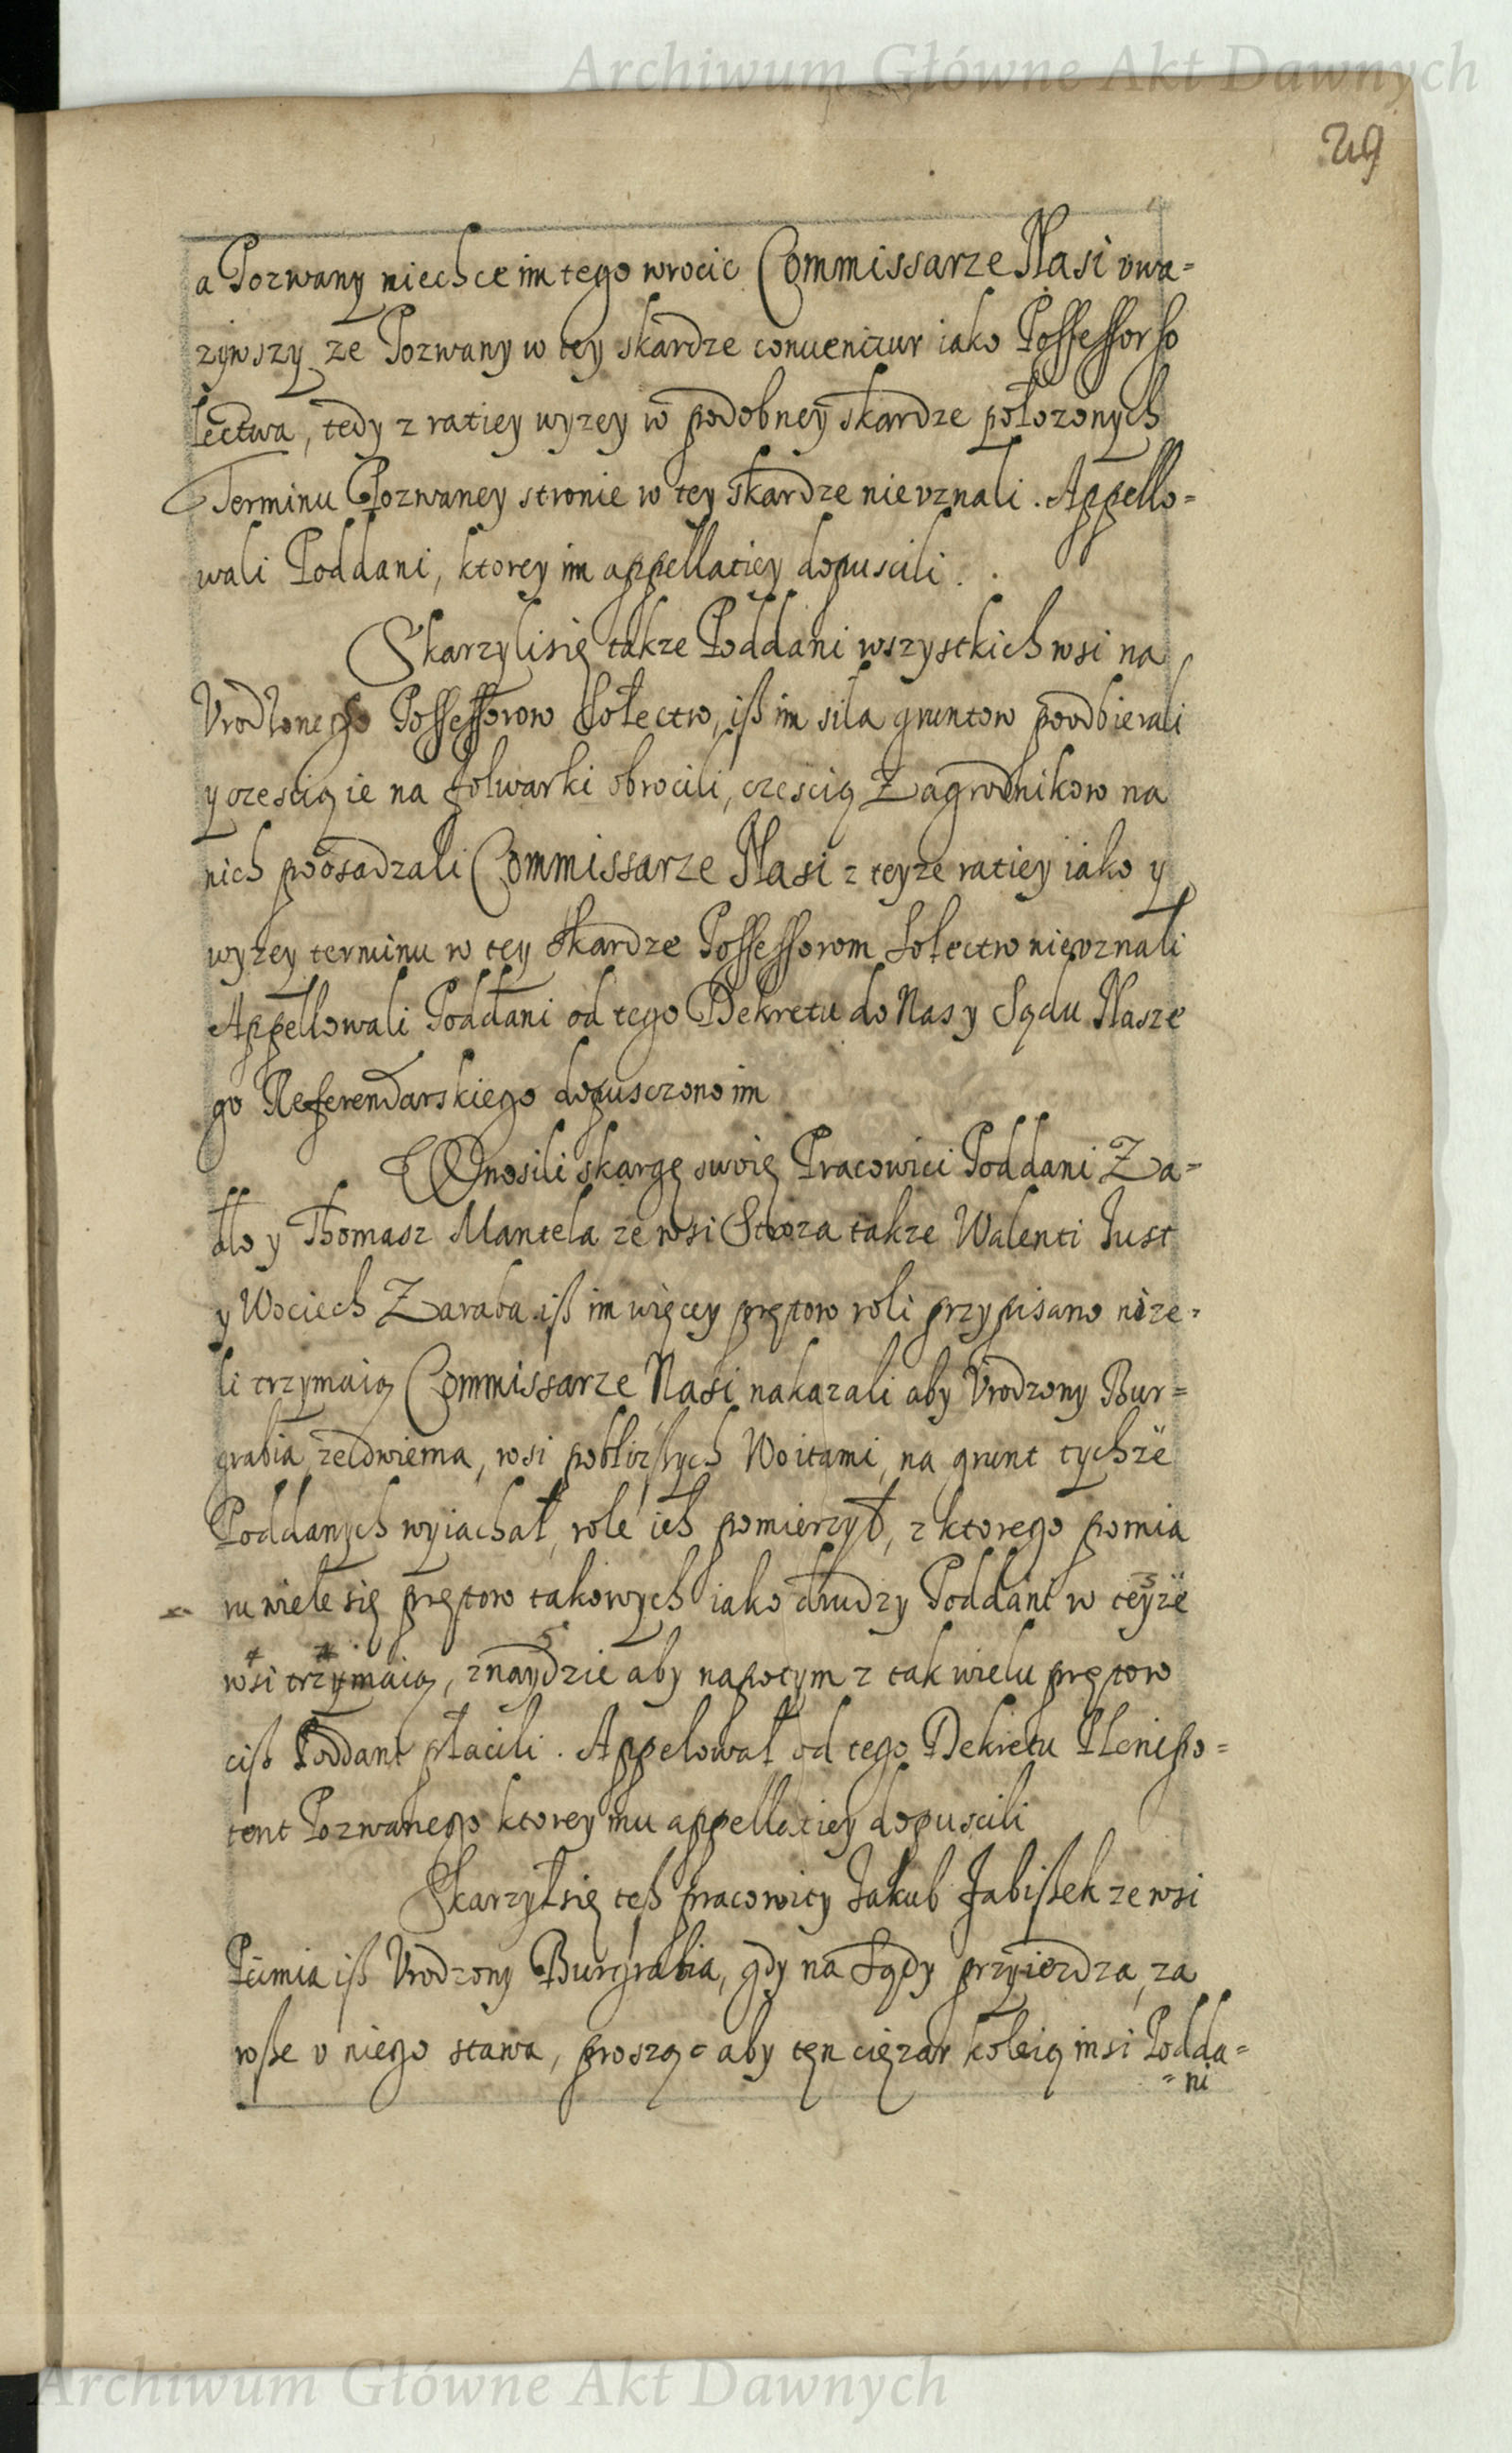 Archiwum Główne Akt Dawnych
29
a Pozwany niechce im tego wrocic Commissarze Nasi vwa=
zywszy ze Pozwany w tey skardze conuenitur iako Possessor so
lectwa, tedy z ratiey wyzey w podobney skardze położonych
Terminu Pozwaney stronie w tey skardze nievznali. Appello=
wali Poddani, ktorey im appellatiey dopuscili.
Skarzyli się takze Poddani wszystkich wsi na
Possessorow Sołectw, iß im siła gruntow poodbierali
y czescią ie na folwarki obrocili, czescią Zagrodnikow na
nich poosadzali Commissarze Nasi z teyze ratiey iako y
wyzey terminu w tey skardze Possessorom Sołectw nievznali
Appellowali Poddani od tego Dekretu do Nas y Sądu Nasze
go Referendarskiego dopusczono im
Wnosili skargę swoię Pracowici Poddani Za=
dło y Thomasz Mantela ze wsi Stroza takze Walenti Just
y Wociech Zaraba iß im więcey prętow roli przypisano nize=
li trzymaią Commissarze Nasi nakazali aby Vrodzony Bur=
grabia ze dwiema, wsi poblizßych Woitami, na grunt tychze
Poddanych wyiachał, role ich pomierzył, z ktorego pomia
ru wiele się prętow takowych iako drudzy Poddani w teyze
wsi trzymaią, znaydzie aby napotym z tak wielu prętow
ciß Poddani płacili. Appelował od tego Dekretu Plenipo=
tent Pozwanego ktorey mu appellatiey dopuscili
Skarzył się teß pracowity Jakub Jabißek ze wsi
Pcimia iß Vrodzony Burgrabia, gdy na Sądy przyiezdza, za
wße v niego stawa, prosząc aby ten cięzar koleią insi Podda=
=ni
Archiwum Główne Akt Dawnych